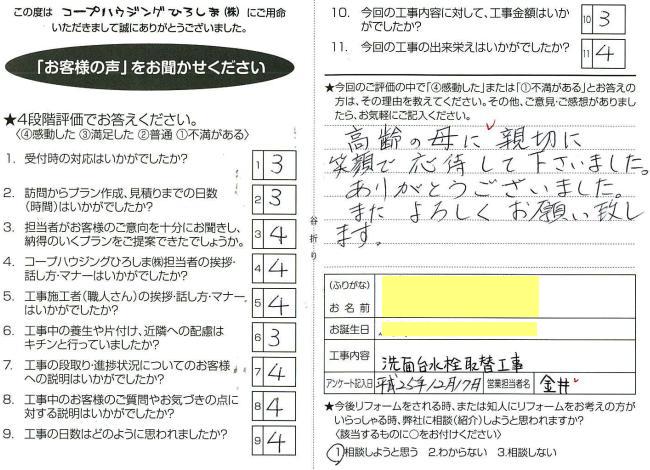 この度は コープハウジングひろしま(株) にご用命
いただきまして誠にありがとうございました。
「お客様の声」をお聞かせください
★4段階評価でお答えください。
〈④感動した ③満足した ②普通 ①不満がある〉
1. 受付時の対応はいかがでしたか?
1 3
2. 訪問からプラン作成、見積りまでの日数
(時間)はいかがでしたか?
2 3
3. 担当者がお客様のご意向を十分にお聞きし、
納得のいくプランをご提案できたでしょうか。
3 4
4. コープハウジングひろしま㈱担当者の挨拶・
話し方・マナーはいかがでしたか?
4 4
5. 工事施工者(職人さん)の挨拶・話し方・マナー
はいかがでしたか?
5 4
6. 工事中の養生や片付け、近隣への配慮は
キチンと行っていましたか?
6 3
7. 工事の段取り・進捗状況についてのお客様
への説明はいかがでしたか?
7 4
8. 工事中のお客様のご質問やお気づきの点に
対する説明はいかがでしたか?
8 4
9. 工事の日数はどのように思われましたか?
9 4
谷折り
10. 今回の工事内容に対して、工事金額はいか
がでしたか?
10 3
11. 今回の工事の出来栄えはいかがでしたか?
11 4
★今回のご評価の中で「④感動した」または「①不満がある」とお答え
の方は、その理由を教えてください。その他、ご意見・ご感想がありまし
たら、お気軽にご記入ください。
高齢の母に 親切に
笑顔で 応待して下さいました。
ありがとうございました。
また よろしく お願い致し
ます。
(ふりがな)
お名前
お誕生日
工事内容 洗面台水栓取替工事
アンケート記入日 平成25年12月17日 営業担当者名 金井
★今後リフォームをされる時、または知人にリフォームをお考えの方が
いらっしゃる時、弊社に相談(紹介)しようと思いますか?
〈該当するものに○をお付けください〉
1.相談しようと思う 2.わからない 3.相談しない